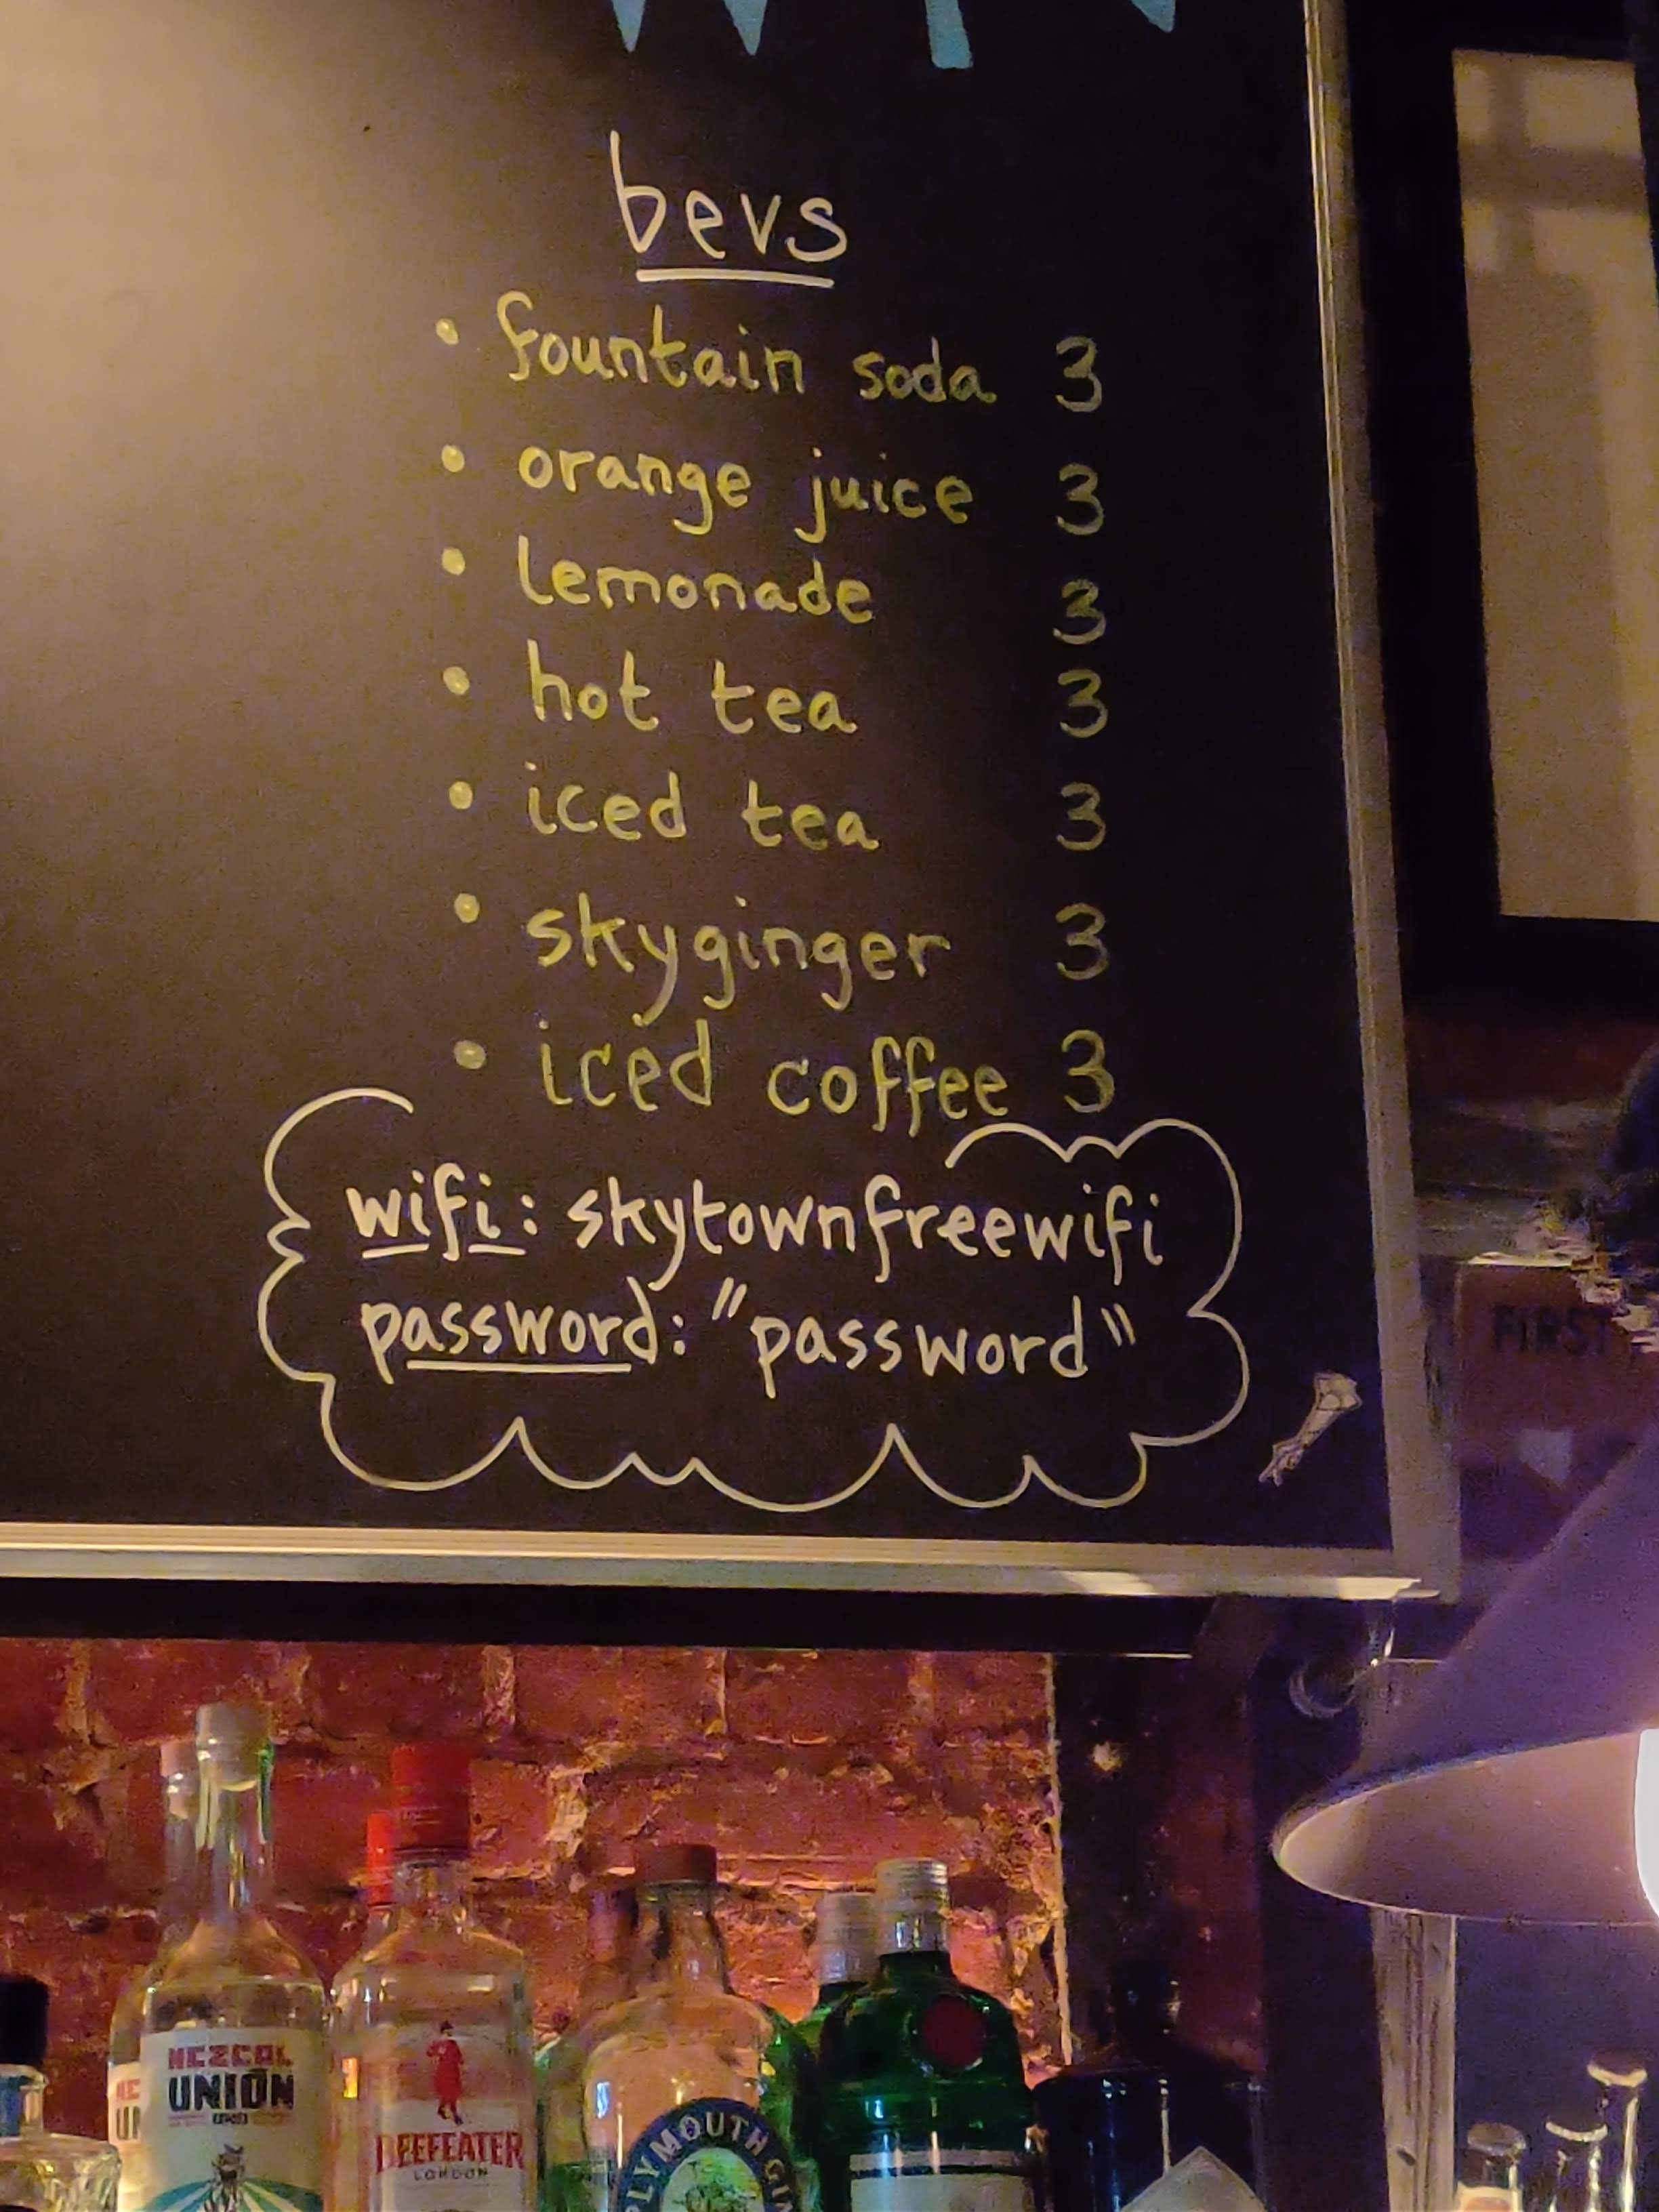 bevs
• fountain soda 3
• orange juice 3
• lemonade 3
• hot tea 3
• iced tea 3
• skyginger 3
• iced coffee 3
wifi: skytownfreewifi
password: "password"
FIRST
MEZCAL
UNIÓN
UNO
BEEFEATER
LONDON
PLYMOUTH GIN